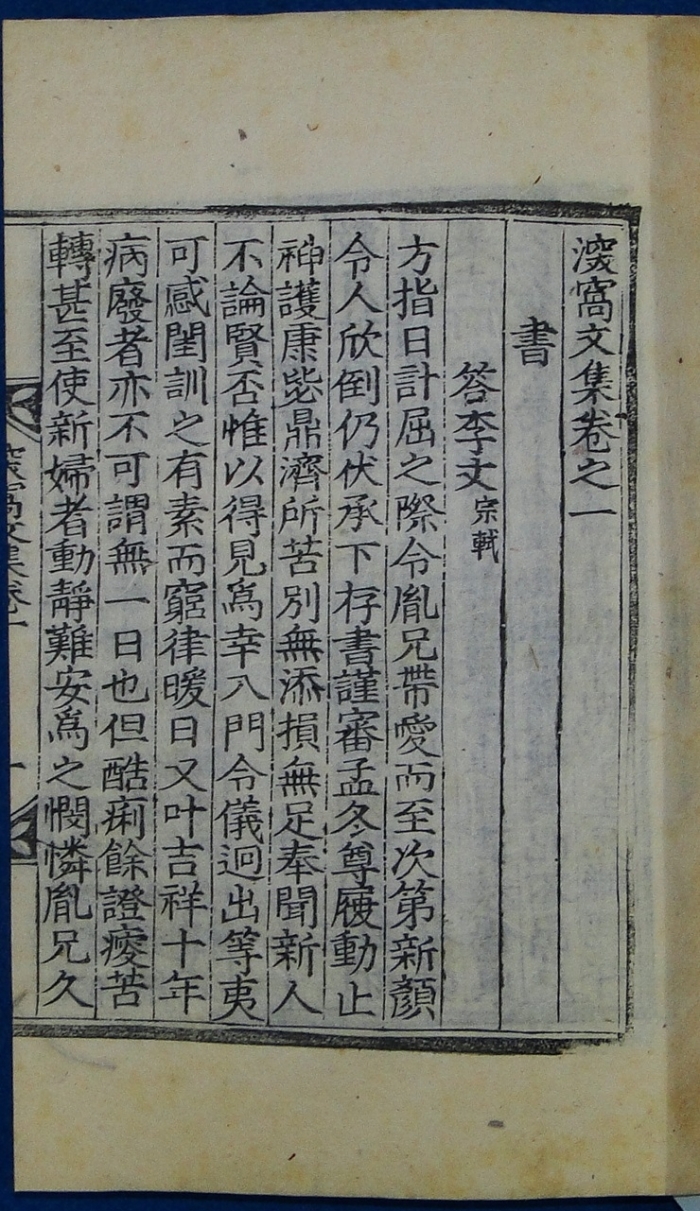 澬窩文集卷之一
書
答李丈宗軾
方指日計屈之際令胤兄帶愛而至次第新顏
令人欣倒仍伏承下存書謹審孟冬尊履動止
神護康毖鼎濟所苦別無添損無足奉聞新人
不論賢否惟以得見爲幸入門令儀逈出等夷
可感閨訓之有素而窮律暖日又叶吉祥十年
病廢者亦不可謂無一日也但酷痢餘證痿苦
轉甚至使新婦者動靜難安爲之憫憐胤兄久
窩文集卷一